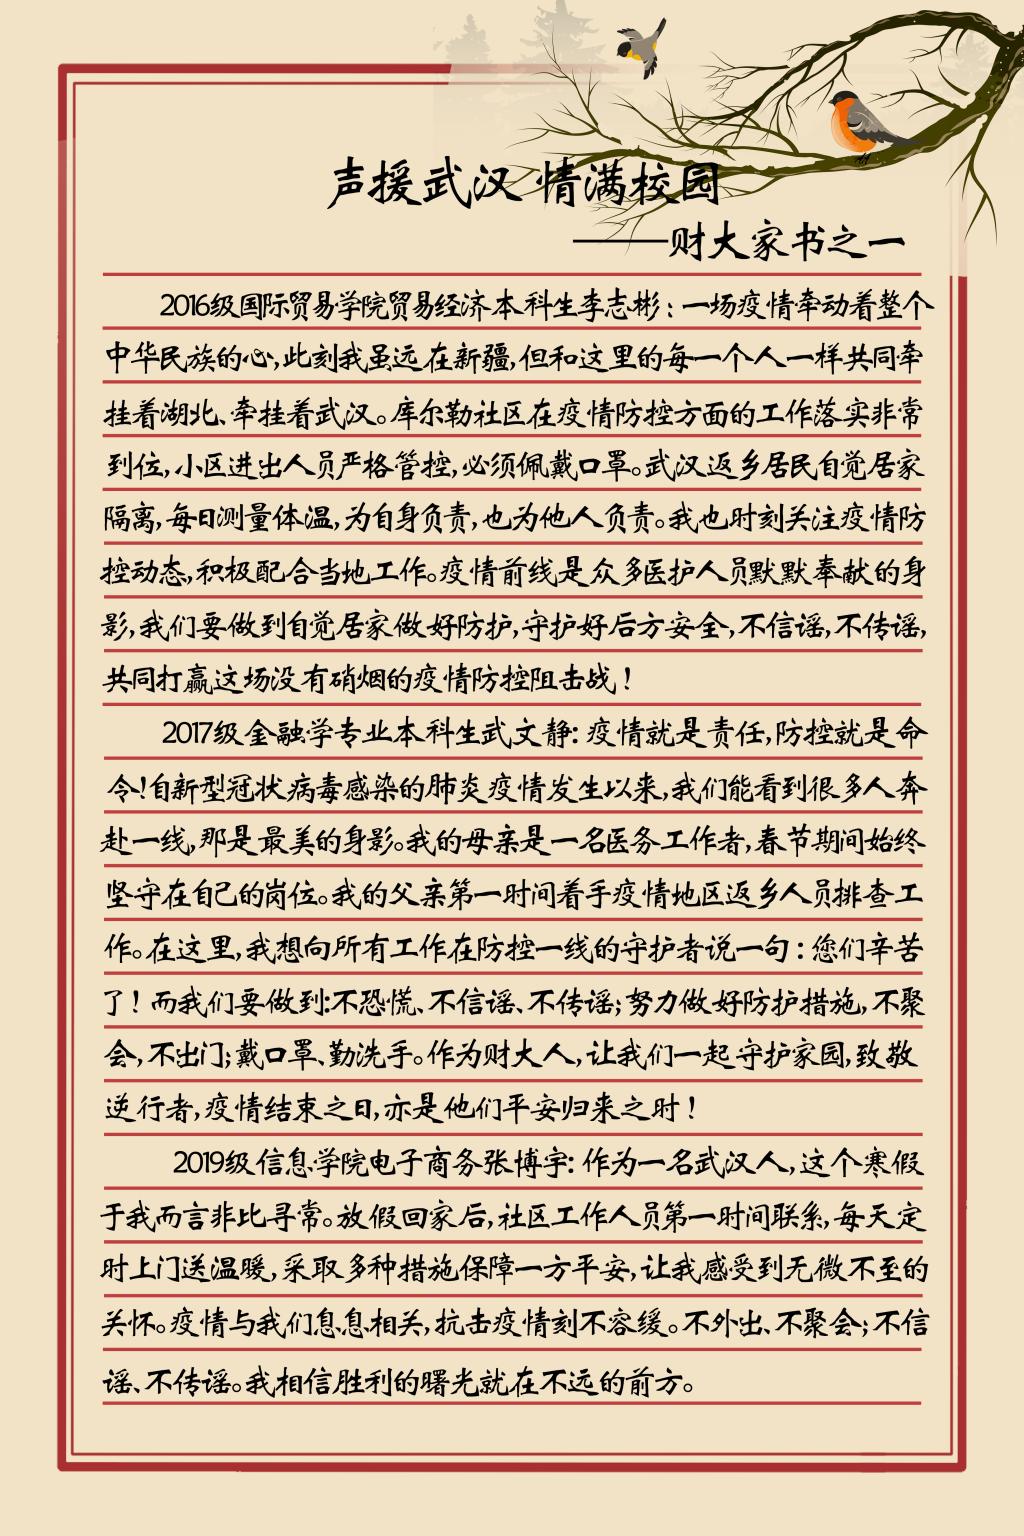 声援武汉 情满校园
——财大家书之一
2016级国际贸易学院贸易经济本科生李志彬：一场疫情牵动着整个
中华民族的心,此刻我虽远在新疆,但和这里的每一个人一样共同牵
挂着湖北、牵挂着武汉。库尔勒社区在疫情防控方面的工作落实非常
到位,小区进出人员严格管控,必须佩戴口罩。武汉返乡居民自觉居家
隔离,每日测量体温,为自身负责,也为他人负责。我也时刻关注疫情防
控动态,积极配合当地工作。疫情前线是众多医护人员默默奉献的身
影,我们要做到自觉居家做好防护,守护好后方安全,不信谣,不传谣,
共同打赢这场没有硝烟的疫情防控阻击战！
2017级金融学专业本科生武文静:疫情就是责任,防控就是命
令!自新型冠状病毒感染的肺炎疫情发生以来,我们能看到很多人奔
赴一线,那是最美的身影。我的母亲是一名医务工作者,春节期间始终
坚守在自己的岗位。我的父亲第一时间着手疫情地区返乡人员排查工
作。在这里,我想向所有工作在防控一线的守护者说一句：您们辛苦
了！而我们要做到:不恐慌、不信谣、不传谣;努力做好防护措施,不聚
会,不出门;戴口罩、勤洗手。作为财大人,让我们一起守护家园,致敬
逆行者,疫情结束之日,亦是他们平安归来之时！
2019级信息学院电子商务张博宇:作为一名武汉人,这个寒假
于我而言非比寻常。放假回家后,社区工作人员第一时间联系,每天定
时上门送温暖,采取多种措施保障一方平安,让我感受到无微不至的
关怀。疫情与我们息息相关,抗击疫情刻不容缓。不外出、不聚会;不信
谣、不传谣。我相信胜利的曙光就在不远的前方。